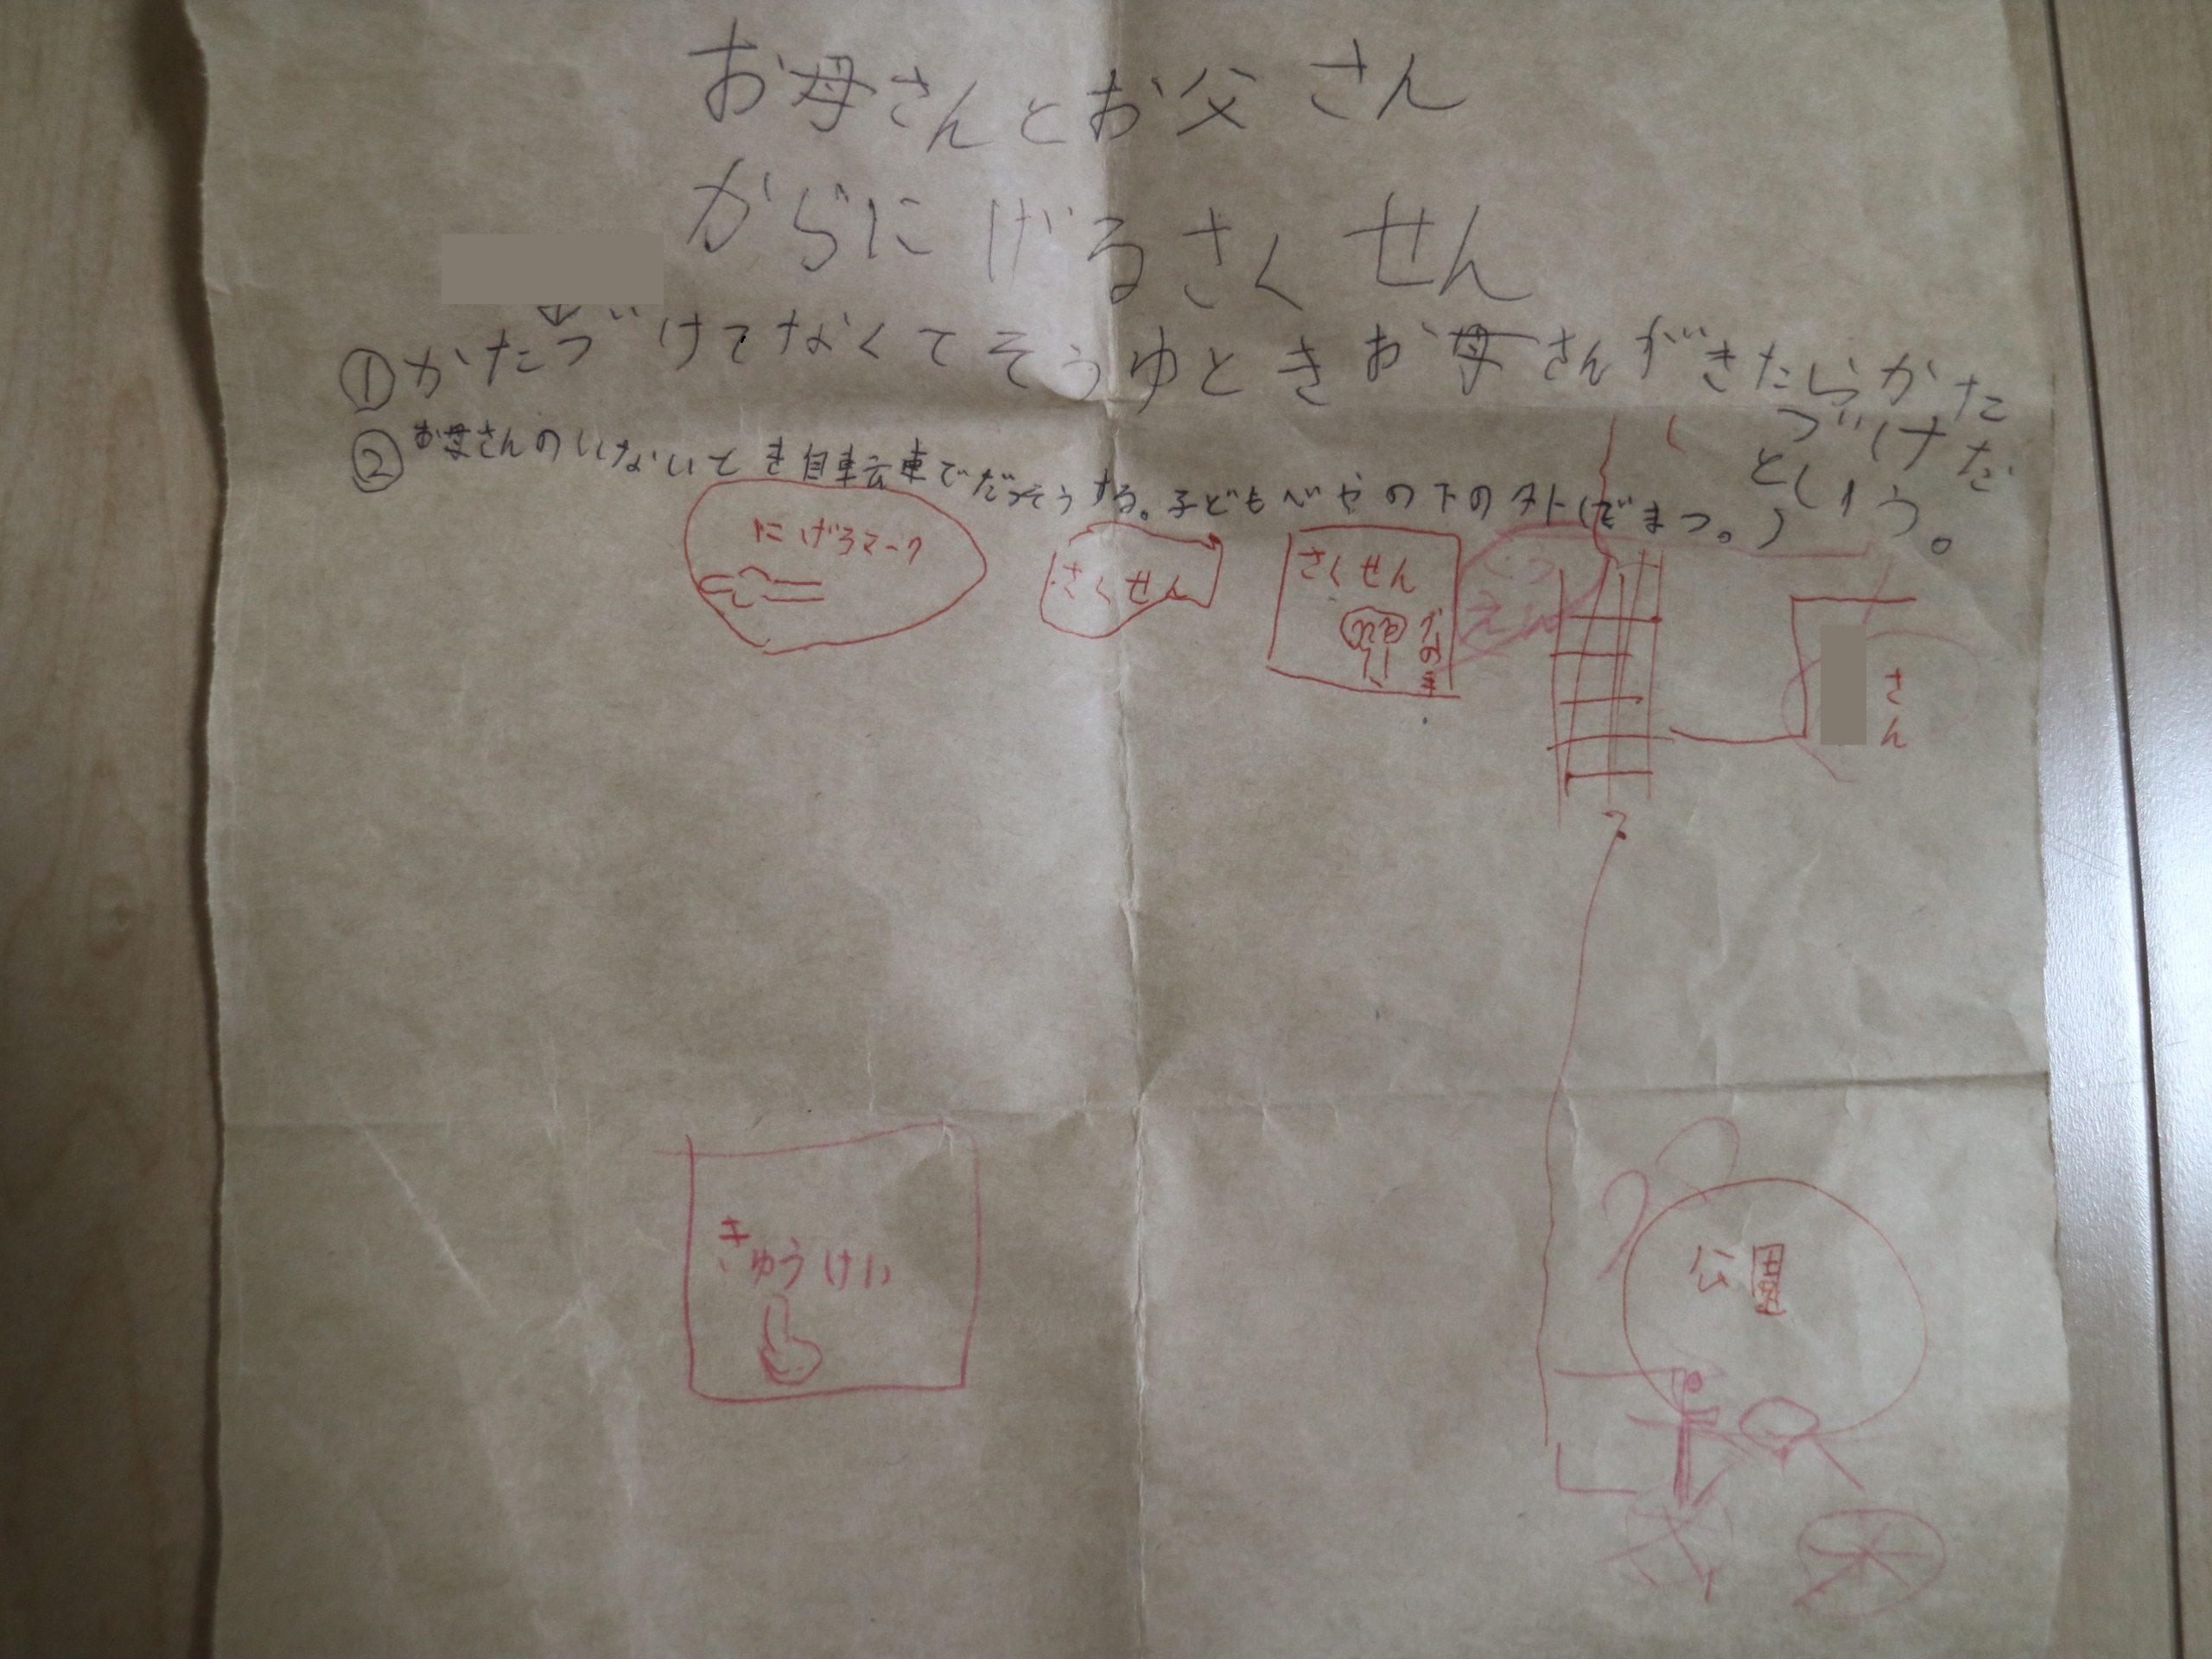 お母さんとお父さん
からにげるさくせん
①かたづけてなくてそうゆときお母さんがきたらかた
づけだ
という。
②お母さんのいないとき自転車でだっそうする。子どもべやの下の外(でまつ。)
にげろマーク
さくせん
さくせん
さん
きゅうけい
公園